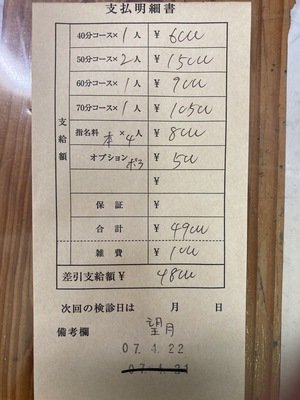 支払明細書
40分コース×1人 ¥ 6000
50分コース×2人 ¥ 15000
60分コース×1人 ¥ 9000
70分コース×1人 ¥ 10500
支給額
指名料 本×4人 ¥ 8000
オプション ポラ ¥ 500
¥
保証 ¥
合計 ¥ 49000
雑費 ¥ 1000
差引支給額 ¥ 48000
次回の検診日は 月 日
備考欄 望月
07.4.22
07.4.21